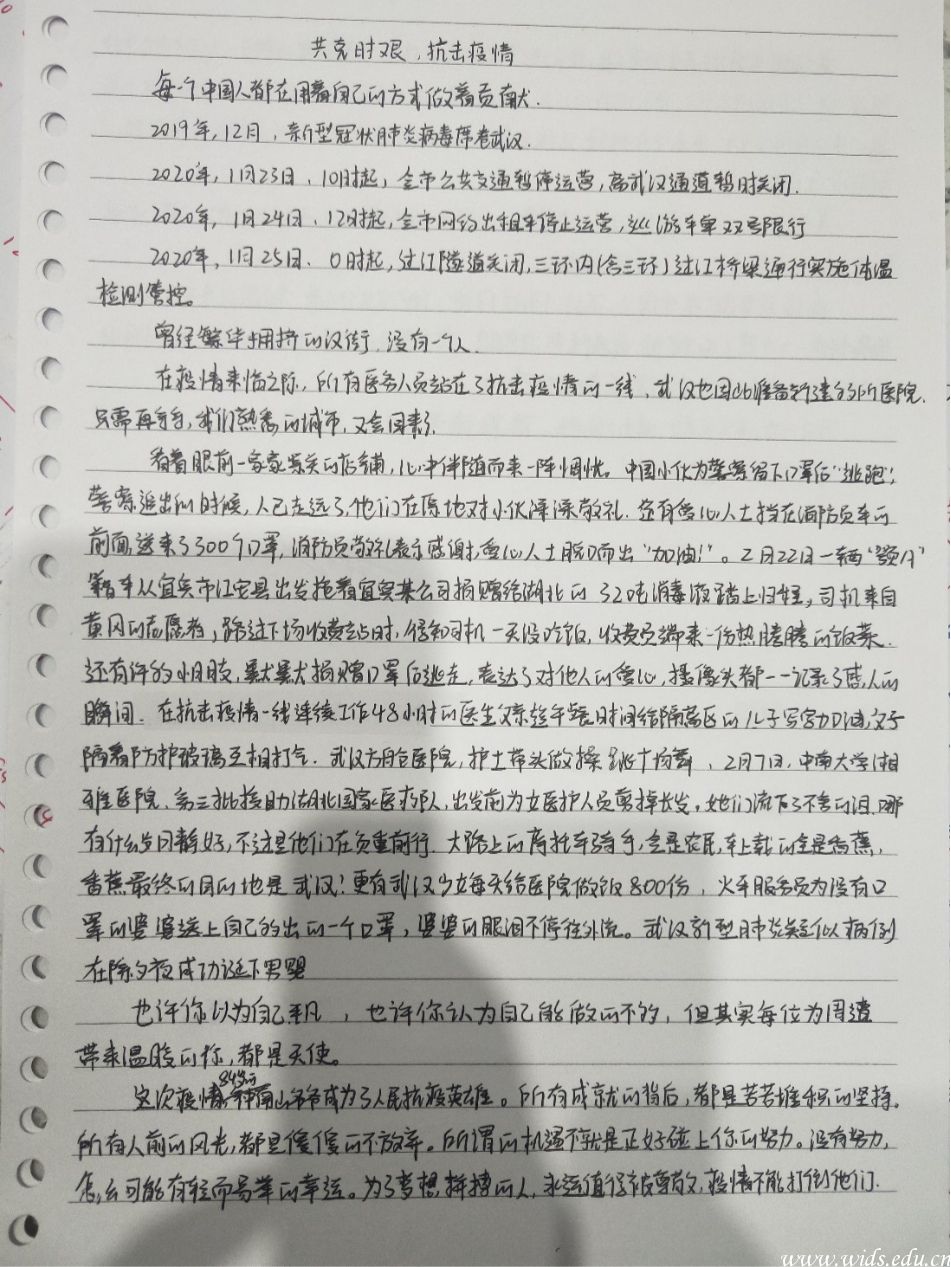 共克时艰,抗击疫情
每一个中国人都在用着自己的方式做着贡献.
2019年,12月,新型冠状肺炎病毒席卷武汉.
2020年,1月23日,10时起,全市公共交通暂停运营,离武汉通道暂时关闭.
2020年,1月24日.12时起,全市网约出租车停止运营,巡游车单双号限行
2020年,1月25日.0时起,过江隧道关闭,三环内(含三环)过江桥梁通行实施体温
检测管控。
曾经繁华拥挤的汉街.没有一个人.
在疫情来临之际,所有医务人员站在了抗击疫情的一线,武汉也因此准备新建方舱医院.
只需再等等,我们熟悉的城市,又会回来了.
看着眼前一家家紧关的店铺,心中伴随而来一阵惆怅.中国小伙为警察留下口罩后“逃跑”;
警察追出的时候,人已走远了,他们在原地对小伙深深敬礼.还有爱心人士挡在消防员车的
前面送来了300个口罩,消防员敬礼表示感谢,爱心人士脱口而出“加油!”。2月22日一辆“鄂A”
车从宜宾市江安县出发拖着宜宾某公司捐赠给湖北的32吨消毒液踏上归程,司机来自
黄冈的志愿者,路过下场收费站时,得知司机一天没吃饭,收费员端来一份热腾腾的饭菜.
还有许多小朋友,默默捐赠口罩后逃走,表达了对他人的爱心,摄像头都一一记录了感人的
瞬间.在抗击疫情一线连续工作48小时的医生父亲趁午餐时间给隔离区的儿子写字加油,父子
隔着防护玻璃互相打气.武汉方舱医院,护士带头做操跳广场舞,2月7日,中南大学湘
雅医院.第三批援助湖北国家医疗队,出发前为女医护人员剪掉长发,她们流下了不舍的泪.哪
有什么岁月静好,不过是他们在负重前行.大路上的摩托车骑手,全是农民,车上载的全是香蕉,
香蕉最终的目的地是武汉!更有武汉少女每天给医院做饭800份,火车服务员为没有口
罩的婆婆送上自己多出的一个口罩,婆婆的眼泪不停往外流。武汉新型肺炎疑似病例
在除夕夜成功诞下男婴
也许你以为自己平凡,也许你认为自己能做的不多,但其实每位为周遭
带来温暖的你,都是天使。
这次疫情84岁的钟南山爷爷成为了人民抗疫英雄。所有成就的背后,都是苦苦堆积的坚持。
所有人前的风光,都是傻傻的不放弃。所谓的机遇不就是正好碰上你的努力。没有努力,
怎么可能有轻而易举的幸运。为了梦想拼搏的人,永远值得被尊敬,疫情不能打倒他们.
www.wids.edu.cn